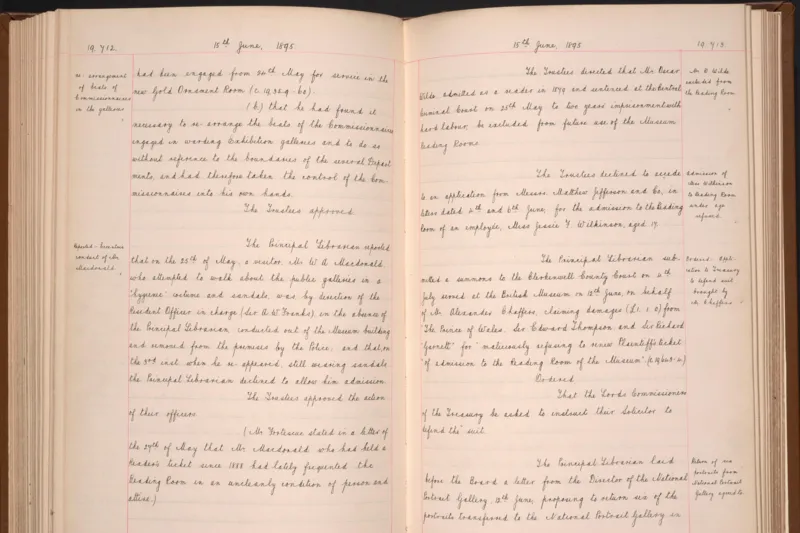 19,712.
15th June, 1895
re-arrangement
of beats of
Commissionaires
in the galleries
had been engaged from 24th May for service in the
new Gold Ornament Room (c. 19,329-60).
(b) that he had found it
necessary to re-arrange the beats of the Commissionaires
engaged in warding Exhibition galleries and to do so
without reference to the boundaries of the several Depart-
ments, and had therefore taken the control of the Com-
missionaires into his own hands.
The Trustees approved
conduct of Mr.
Macdonald.
The Principal Librarian reported
that on the 25th of May, a visitor, Mr. W. A. Macdonald
who attempted to walk about the public galleries in a
"hygienic" costume and sandals, was by direction of the
Resident Officer in charge (Sir A. W. Franks), in the absence of
the Principal Librarian, conducted out of the Museum building
and removed from the premises by the Police; and that, on
the 3rd inst. when he re-appeared, still wearing sandals
the Principal Librarian declined to allow him admission
The Trustees approved the action
of their officers
(Mr. Fortescue stated in a letter of
the 27th of May that Mr. Macdonald who had held a
Reader's ticket since 1888 had lately frequented the
Reading Room in an uncleanly condition of person and
attire.)
15th June, 1895
19,713.
The Trustees directed that Mr. Oscar
Wilde, admitted as a reader in 1879 and sentenced at the Central
Criminal Court on 25th May to two years imprisonment with
hard labour, be excluded from future use of the Museum
Reading Room
Mr. O. Wilde
excluded from
the Reading Room
The Trustees declined to accede
to an application from Messrs. Matthew Jefferson and Co., in
letters dated 4th and 6th June, for the admission to the Reading
Room of an employee, Miss Jessie Y. Wilkinson, aged 19.
Admission of
Miss Wilkinson
to Reading Room
under age
refused.
The Principal Librarian sub-
mitted a summons to the Clerkenwell County Court on 4th
July served at the British Museum on 12th June, on behalf
of Mr. Alexander Chaffers, claiming damages (£1. 1. 0) from
"The Prince of Wales, Sir Edward Thompson and Sir Richard
Garnett" for "maliciously refusing to renew Plaintiff's ticket
"of admission to the Reading Room of the Museum"
Ordered
That the Lords Commissioners
of the Treasury be asked to instruct their Solicitor to
defend the suit
Ordered Appli-
cation to Treasury
to defend suit
brought by
Mr. Chaffers
The Principal Librarian laid
before the Board a letter from the Director of the National
Portrait Gallery, 12th June, proposing to return six of the
portraits transferred to the National Portrait Gallery in
Return of six
portraits from
National Portrait
Gallery agreed to.